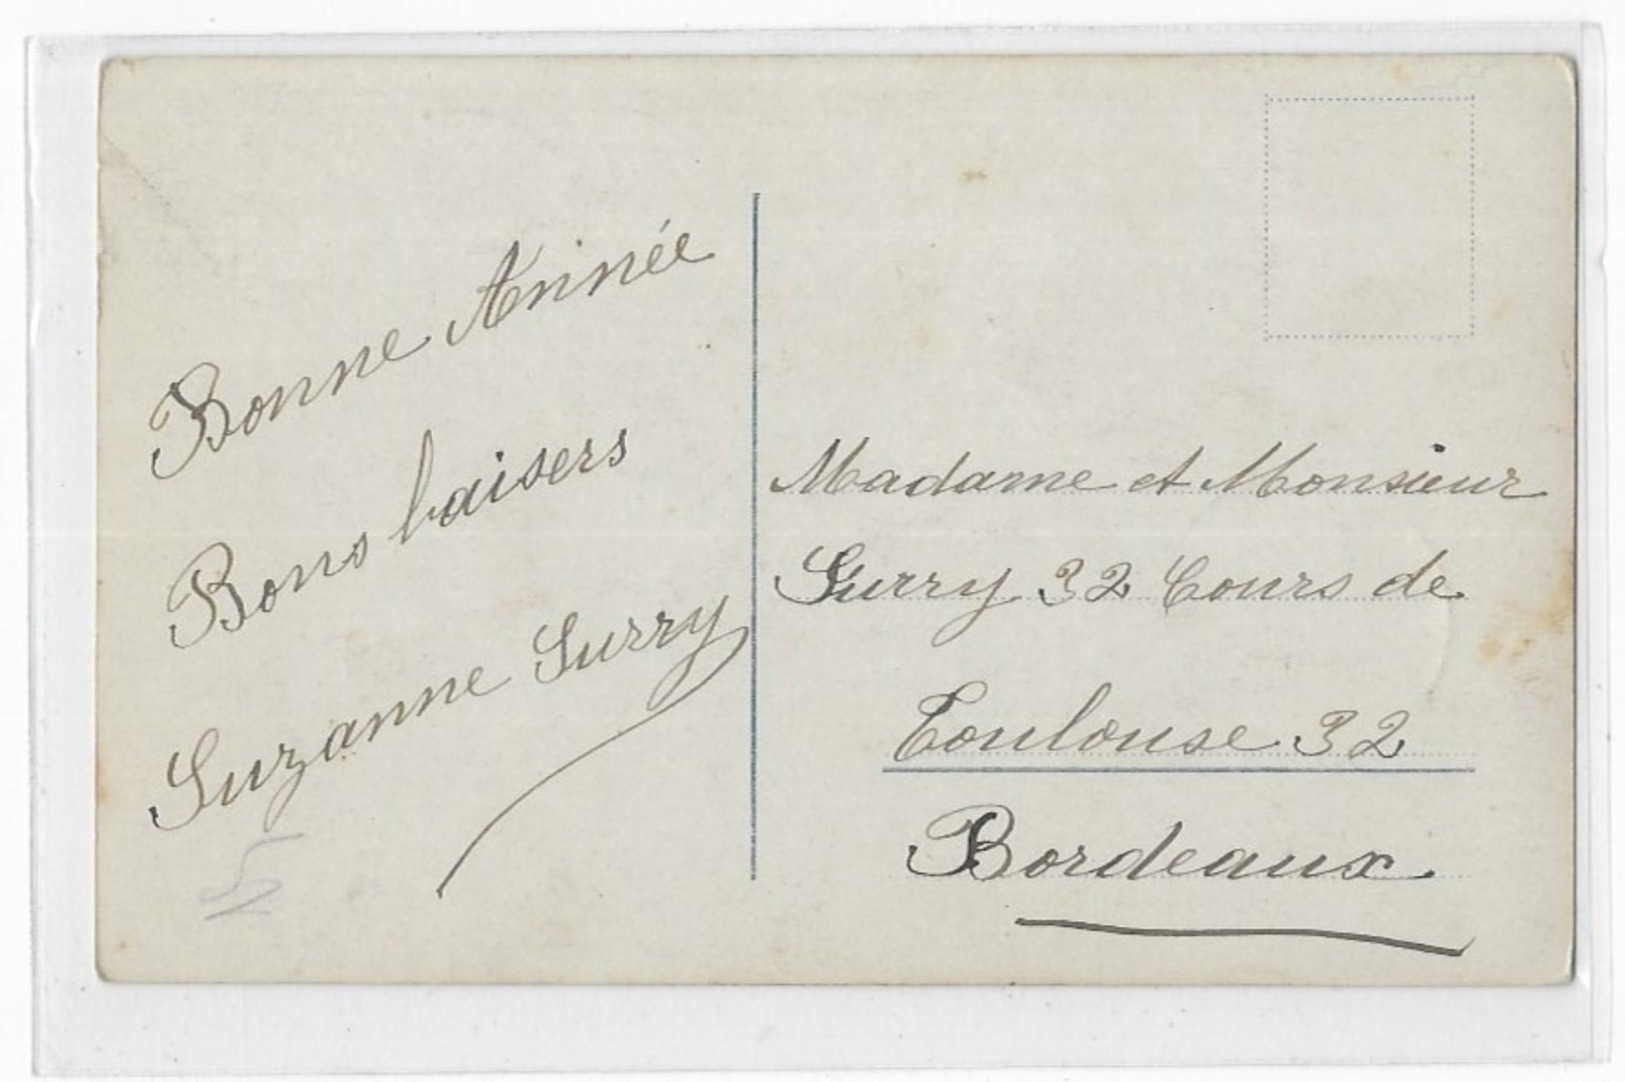 Bonne Année
Bons baisers
Suzanne Surry
Madame et Monsieur
Surry 32 Cours de
Toulouse 32
Bordeaux